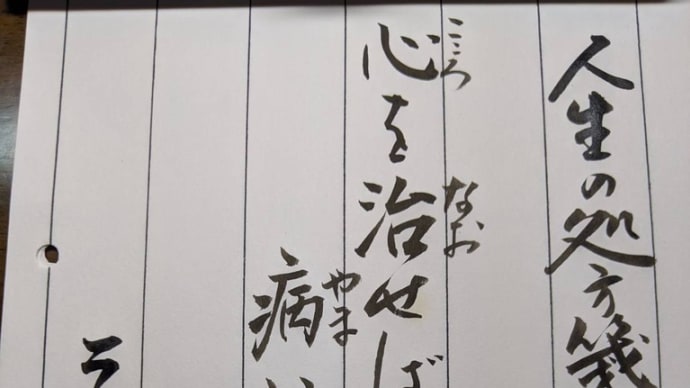 人生の処方箋
こころ なお
心を治せば
やま
病い